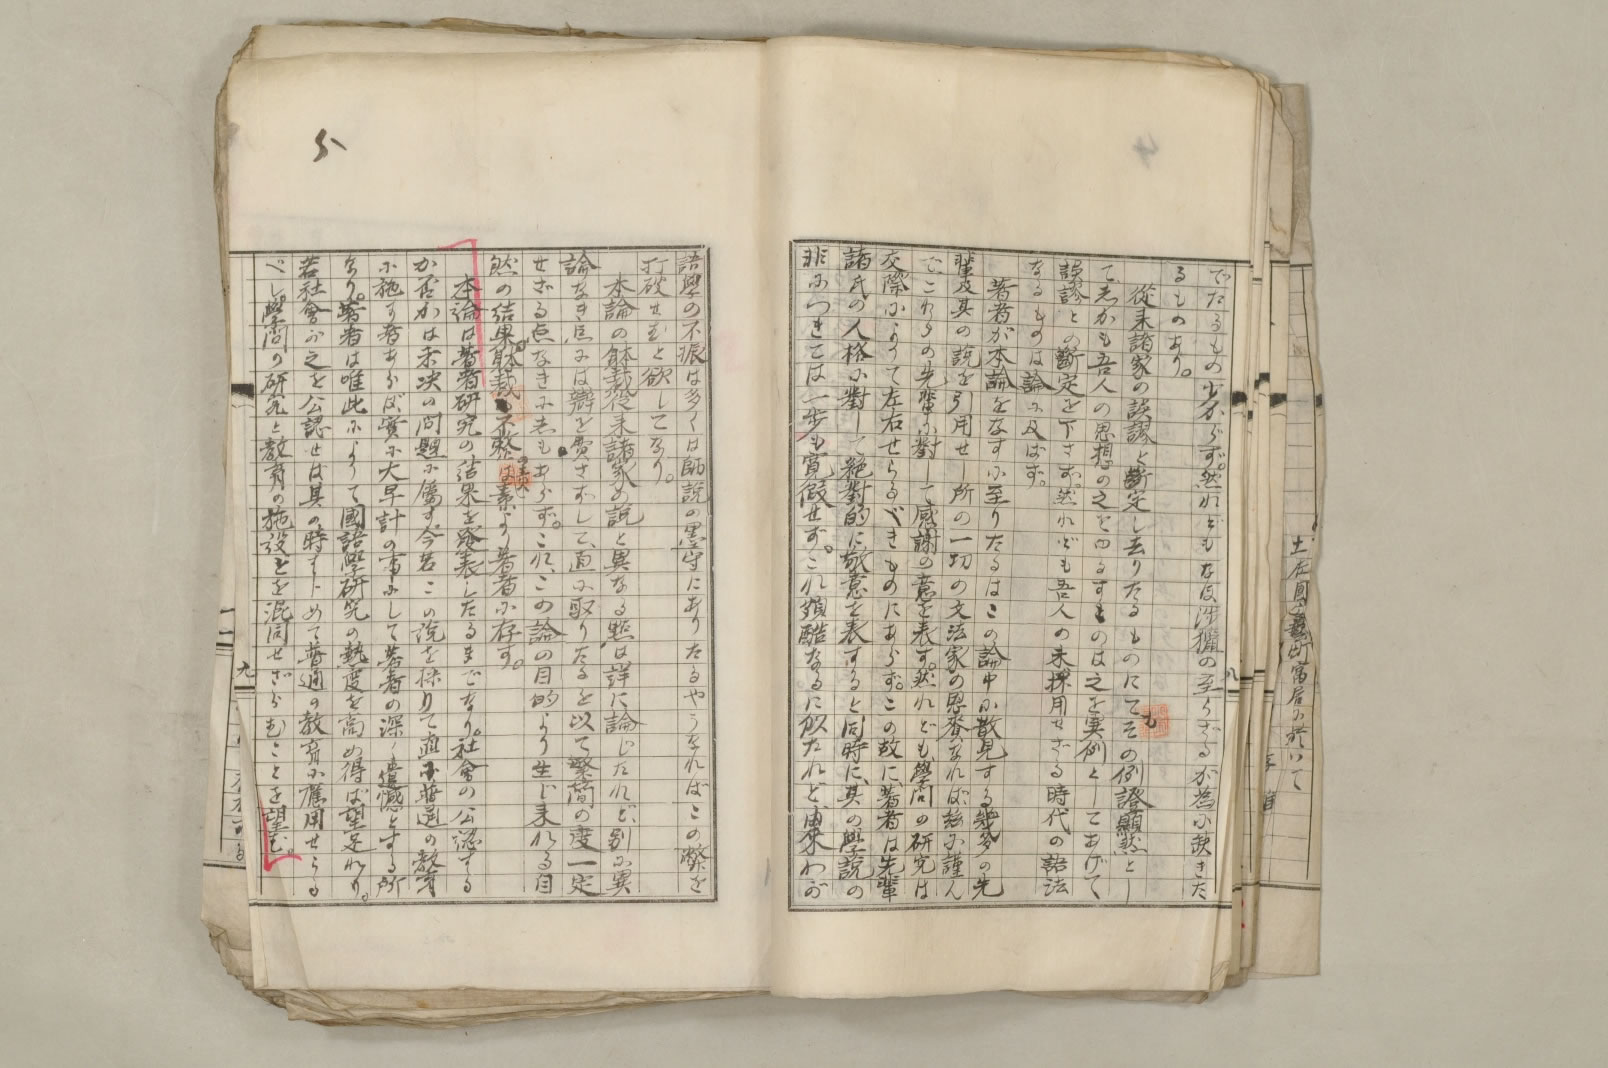 でたるもの少からず。然れどもなほ渉獵の至らざるが為に缺きた
るものあり。
従来諸家の誤謬と断定し去りたるものにてその例證顯然とし
てしかも吾人の思想の之をゆるすものは之を実例としてあげて
誤謬との断定を下さず。然れども吾人の未採用せざる時代の語法
なるものは論に及ばず。
著者が本論をなすに至りたるはこの論中に散見する幾多の先
輩及其の説を引用せし所の一切の文法家の恩賚なれば茲に謹ん
でこれらの先輩に對して感謝の意を表す。然れども學問の研究は
交際によりて左右せらるべきものにあらず。この故に著者は先輩
諸氏の人格に對して絶對的に敬意を表すると同時に其の學説の
非につきては一歩も寛假せず。これ頗酷なるに似たれど由来わが
語學の不振は多くは師説の墨守にありたるやうなればこの弊を
打破せむと欲してなり。
本論の躰裁従来諸家の説と異なる點は詳に論じたれど、別に異
論なき点には辯を費さずして直に取りたるを以て繁簡の度一定
せざる点なきにしもあらず。これ、この論の目的より生じ来れる自
然の結果、躰裁の不整は素より著者に存す。
本論は著者研究の結果を発表したるまでなり。社會の公認する
か否かは未决の問題に屬す今若この説を採りて直に普通の教育
に施す者あらば實に大早計の事にして著者の深く遺憾とする所
なり。著者は唯此によりて國語學研究の熱度を高め得ば望足れり。
若社會が之を公認せば其の時はじめて普通の教育に應用せらる
べし學問の研究と教育の施設とを混同せざらむことを望む。
八
九
5
4